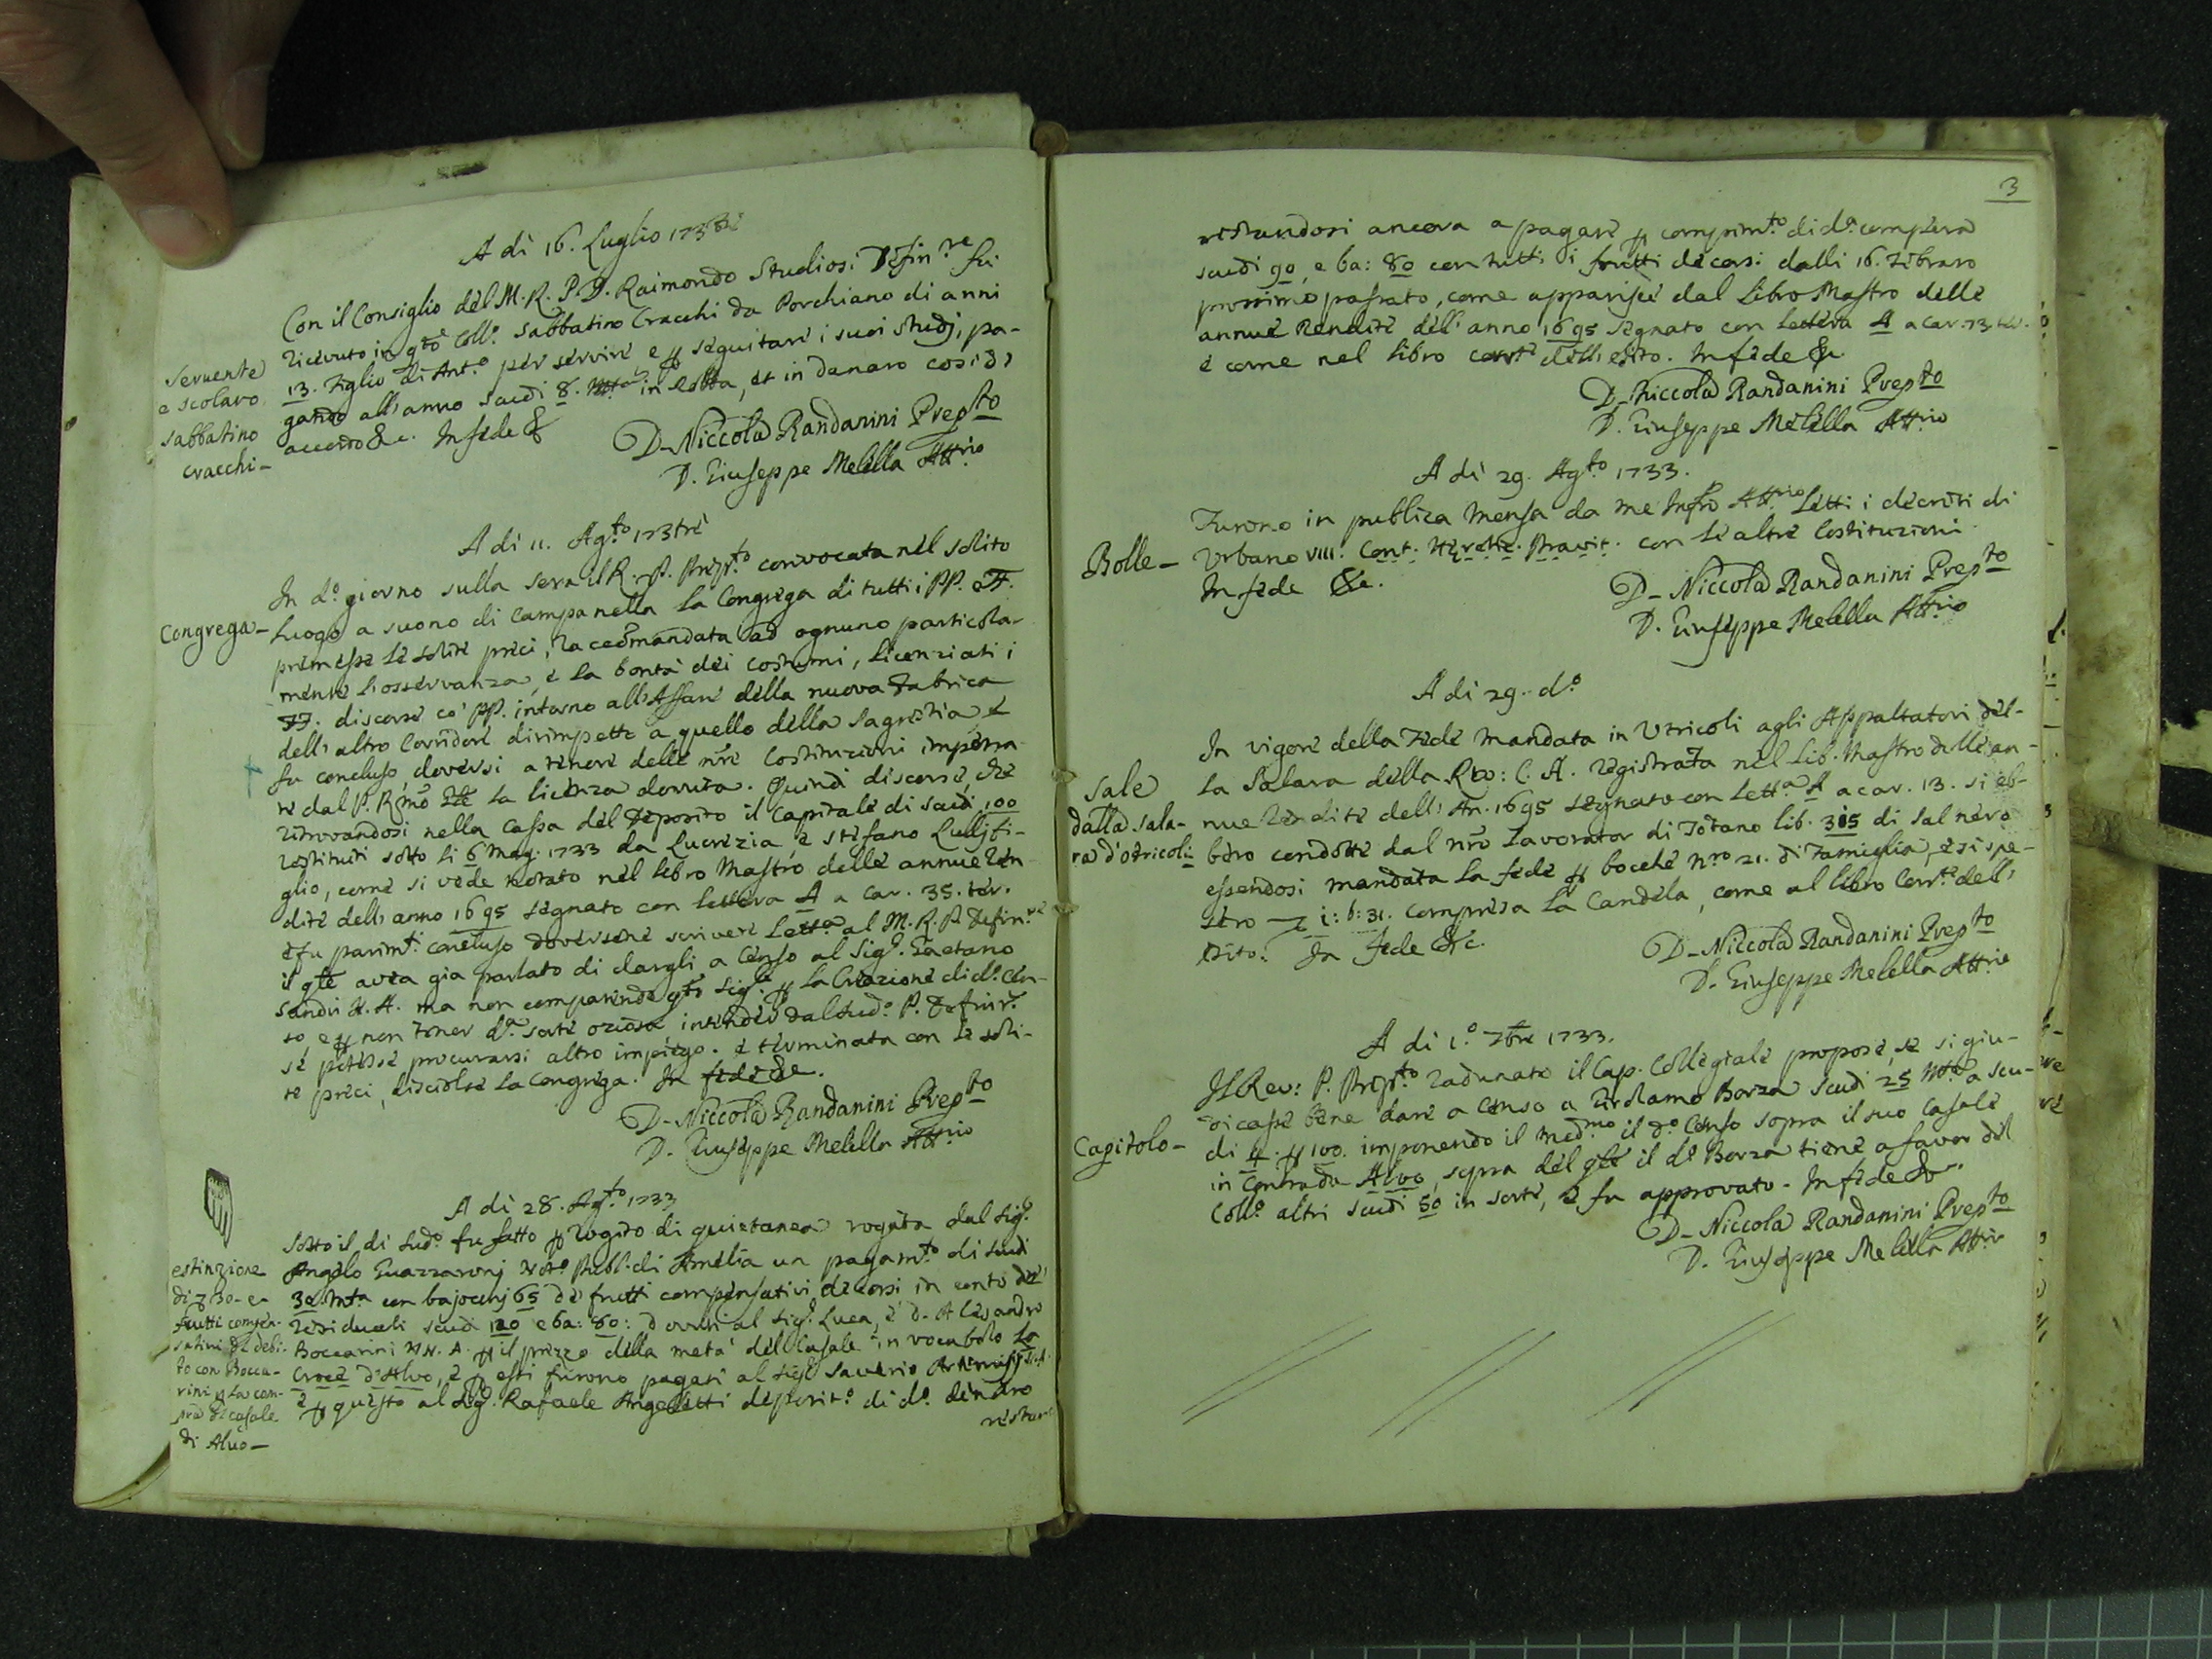 A dì 16. Luglio 173tre
Con il Consiglio del M. R. P. D. Raimondo Studiosi Defin.re fu
ricevuto in q̃to Coll.º Sabbatino Cracchi da Porchiano di anni
13. figlio di Ant.º per servire e p seguitare i suoi studj, pa-
gando all'anno scudi 8. m.ta in robba, et in danaro così d'
accordo &c. In fede &
servente
e scolaro
Sabbatino
Cracchi-
D. Niccola Randanini Prep.to
D. Giuseppe Melella Att.rio
A dì 11. Ag.to 173tre
In d.º giorno sulla sera il R. P. Prep.to convocata nel solito
luogo a suono di Campanella la Congrega di tutti i PP. e FF.
premesse le solite preci, raccõmandata ad ognuno particola-
mente l'osservanza, e la bontà dei costumi, licenziati i
FF. discorse co' PP. intorno all'Affare della nuova Fabrica
dell'altro Corridore dirimpetto a quello della Sagrestia, e
fu concluso doversi a tenore delle n̄re Costituzioni impetra-
re dal P. R̃mo la licenza dovuta. Quindi discorse, che
ritrovandosi nella Cassa del Deposito il Capitale di scudi 100
restituiti sotto li 6 Mag. 1733 da Lucrezia e Stefano Lullj fi-
glio, come si vede notato nel libro Mastro delle annue ren-
dite dell'anno 1695 segnato con lettera A a car. 35. ter.
e fu parim.ti concluso doversene scrivere lett.a al M. R. P. Defin.re
il q̃le avea già parlato di dargli a Censo al Sig.r Gaetano
Sandri N. A. ma non comparendo q̃to Sig.re p la Creazione di d.º Cen-
so e p non tener d.a sorte oziosa intender dal sud.º P. Definit.
se potesse procurarsi altro impiego. e terminata con le soli-
te preci, disciolse la Congrega. In fede &c.
Congrega-
D. Niccola Randanini Prep.to
D. Giuseppe Melella Att.rio
A dì 28. Ag.to 1733
Sotto il dì sud.º fu fatto p rogito di quietanza rogata dal Sig.r
Angelo Guazzaronj Not.º Publ. di Amelia un pagam.to di scudi
30 m.ta con bajocchj 65 de frutti compensativi decorsi in conto de
residuali scudi 120 e ba: 80: dovuti al Sig.r Luca, e D. Alesandro
Boccarini NN. A. p il prezzo della metà del Casale in vocabolo la
Croce d'Alvo, e p essi furono pagati al Sig.r Saverio
e p questo al Sig.r Rafaele Angeletti deposit.º di d.º denaro
restan-
estinzione
di 30- e
frutti compen-
sativi de debi-
to con Bocca-
rini p la com-
pra de casale
di Alvo-
3
restandosi ancora a pagare p compim.to di d.a compera
scudi 90, e ba: 80 con tutti i frutti decorsi dalli 16. Febraro
prossimo passato, come apparisce dal Libro Mastro delle
annue Rendite dell'anno 1695 segnato con lettera A a car. 73 ter.
e come nel libro corr.te dell'esito. In fede &c.
D. Niccola Randanini Prep.to
D. Giuseppe Melella Att.rio
A dì 29. Ag.to 1733.
Furono in publica Mensa da me Infrõ Att.rio Letti i decreti di
Urbano VIII. Cont. Heretic. Pravit. con le altre Costituzioni
In fede &c.
Bolle-
D. Niccola Randanini Prep.to
D. Giuseppe Melella Att.rio
A dì 29. d.º
In vigore della Fede mandata in Utricoli agli Appaltatori del-
la Salara della Rev: C. A. registrata nel Lib. Mastro delle an-
nue rendite dell'An. 1695 segnato con Lett.a A a car. 13. si eb-
bero condotte dal n̄ro Lavorator di Totano lib. 315 di sal nero
essendosi mandata la fede p bocche N.ro 21. di Famiglia, e si spe-
sero 1: b: 31. compresa la Candela, come al libro Corr.te dell'
Esito. In fede &c.
Sale
dalla sala-
ra d'Otricoli
D. Niccola Randanini Prep.to
D. Giuseppe Melella Att.rio
A dì 1.º 7bre 1733.
Il Rev: P. Prep.to radunato il Cap. Collegiale propose, se si giu-
dicasse bene dare a Censo a Girolamo Borza scudi 25 m.ta a scu-
di 4. p 100. imponendo il med.mo il d.º Censo sopra il suo Casale
in Contrada Alvo, sopra del q̃le il d.º Borza tiene a favor del
Coll.º altri scudi 50 in sorte, e fu approvato. In fede &c.
Capitolo-
D. Niccola Randanini Prep.to
D. Giuseppe Melella Att.rio